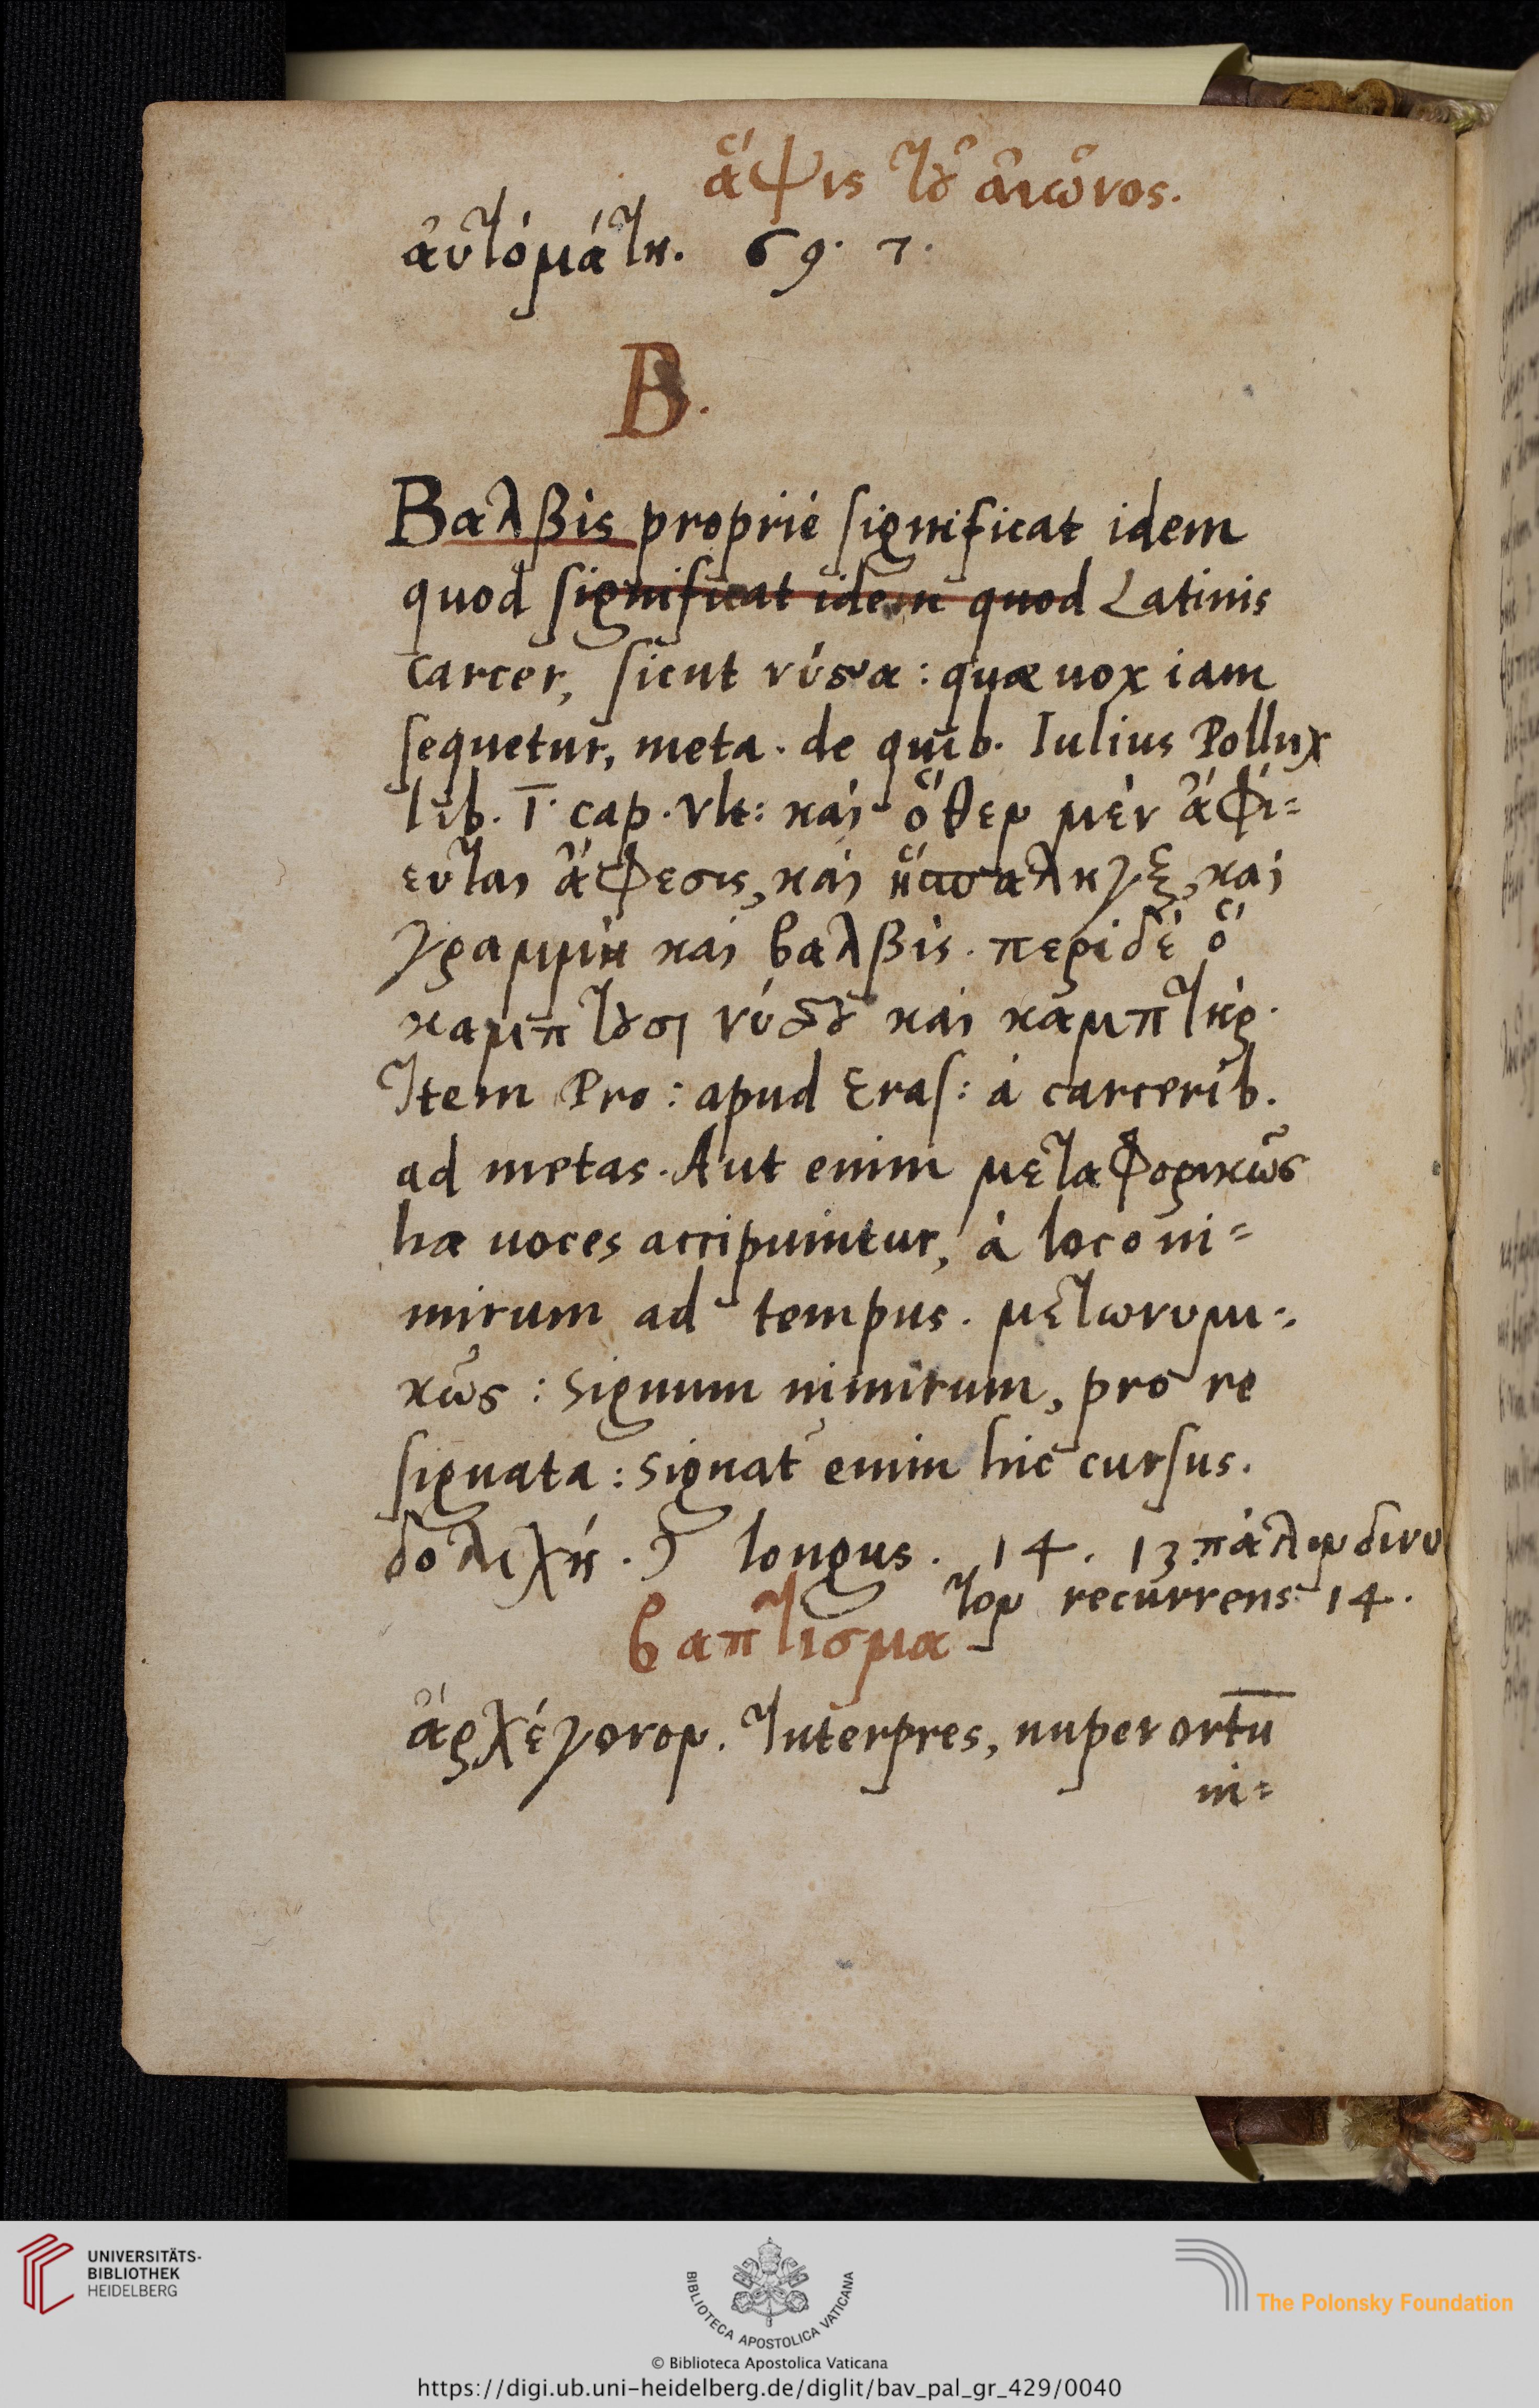 ἅψις τȣ̃ αἰῶνος.
αὐτόμάτη. 69. 7.
B.
Βαλβὶς proprié significat idem
quod significat idem quod Latinis
carcer, sicut νύσσα: quæ uox iam
sequetur, meta. de quib. Iulius Pollux
lib. I. cap. vlt: καὶ ὅθεν μὲν ἀφί=
ενται ἄφεσις, καὶ ὕσπληγξ, καὶ
γραμμὴ καὶ βαλβὶς. περὶ δὲ ὃ
καμπτȣσι νύσσȣ καὶ καμπτὴρ.
Item Pro: apud Eras: à carcerib.
ad metas. Aut enim μεταφορικῶς
hæ uoces accipiuntur, à loco ni=
mirum ad tempus. μετωνυμι=
κῶς: signum nimirum, pro re
signata: signat enim hic cursus.
δολιχή. longus. 14. 13 πάλινδινυ
τον recurrens 14.
βαπτισμα
ἀρχέγονον. Interpres, nuper ortū
ni=
UNIVERSITÄTS-
BIBLIOTHEK
HEIDELBERG
BIBLIOTECA APOSTOLICA VATICANA
The Polonsky Foundation
© Biblioteca Apostolica Vaticana
https://digi.ub.uni-heidelberg.de/diglit/bav_pal_gr_429/0040